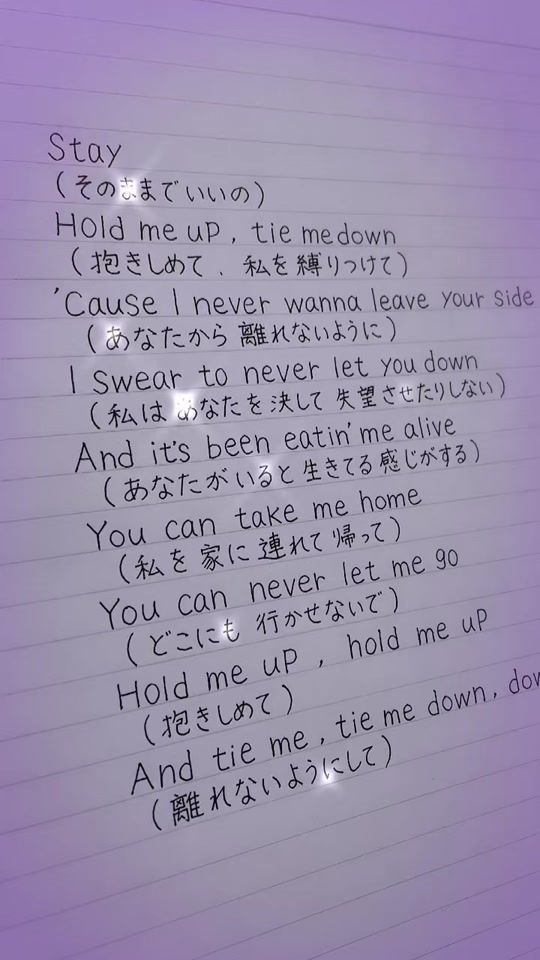 Stay
(そのままでいいの)
Hold me up, tie me down
(抱きしめて、私を縛りつけて)
'Cause I never wanna leave your side
(あなたから離れないように)
I swear to never let you down
(私はあなたを決して失望させたりしない)
And it's been eatin' me alive
(あなたがいると生きてる感じがする)
You can take me home
(私を家に連れて帰って)
You can never let me go
(どこにも行かせないで)
Hold me up, hold me up
(抱きしめて)
And tie me, tie me down, dow
(離れないようにして)